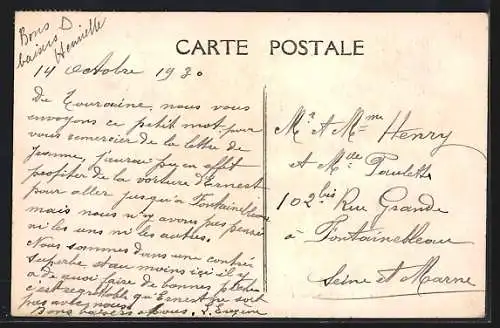 Bons
baisers D
Henriette
CARTE POSTALE
14 Octobre 1930
De Touraine, nous vous
envoyons ce petit mot pour
vous remercier de la lettre de
Jeanne, j'aurai pu en effet
profiter de la voiture d'Ernest
pour aller jusqu'à Fontainebleau
mais nous n'y avons pas pensé
ni les uns ni les autres.
Nous sommes dans une contrée
superbe et au moins ici il y
a de quoi faire de bonnes photos
c'est regrettable qu'Ernest ne soit
pas avec nous.
Bons baisers à vous. L. Eugène
Mr et Mme Henry
et Mlle Paulette
102 bis Rue Grande
à Fontainebleau
Seine et Marne